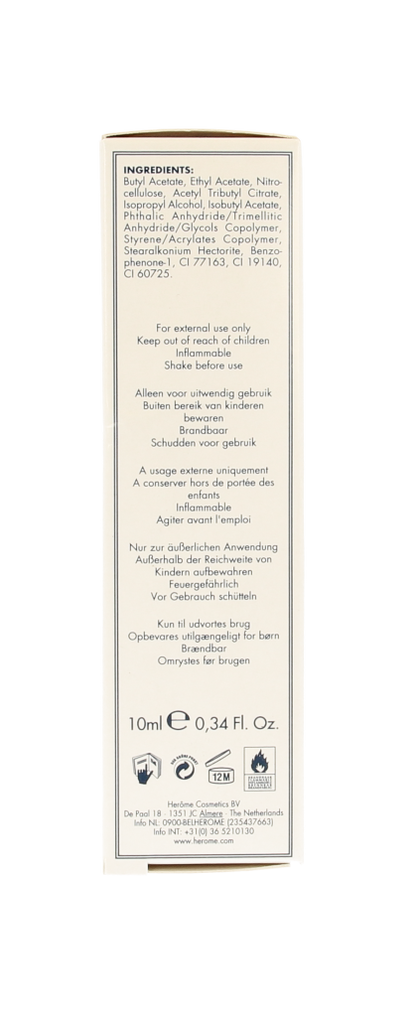 INGREDIENTS:
Butyl Acetate, Ethyl Acetate, Nitro-
cellulose, Acetyl Tributyl Citrate,
Isopropyl Alcohol, Isobutyl Acetate,
Phthalic Anhydride/Trimellitic
Anhydride/Glycols Copolymer,
Styrene/Acrylates Copolymer,
Stearalkonium Hectorite, Benzo-
phenone-1, CI 77163, CI 19140,
CI 60725.
For external use only
Keep out of reach of children
Inflammable
Shake before use
Alleen voor uitwendig gebruik
Buiten bereik van kinderen
bewaren
Brandbaar
Schudden voor gebruik
A usage externe uniquement
A conserver hors de portée des
enfants
Inflammable
Agiter avant l'emploi
Nur zur äußerlichen Anwendung
Außerhalb der Reichweite von
Kindern aufbewahren
Feuergefährlich
Vor Gebrauch schütteln
Kun til udvortes brug
Opbevares utilgængeligt for børn
Brændbar
Omrystes før brugen
10ml e 0,34 Fl. Oz.
12M
Herôme Cosmetics BV
De Paal 18 - 1351 JC Almere - The Netherlands
Info NL: 0900-BELHEROME (235437663)
Info INT: +31(0) 36 5210130
www.herome.com